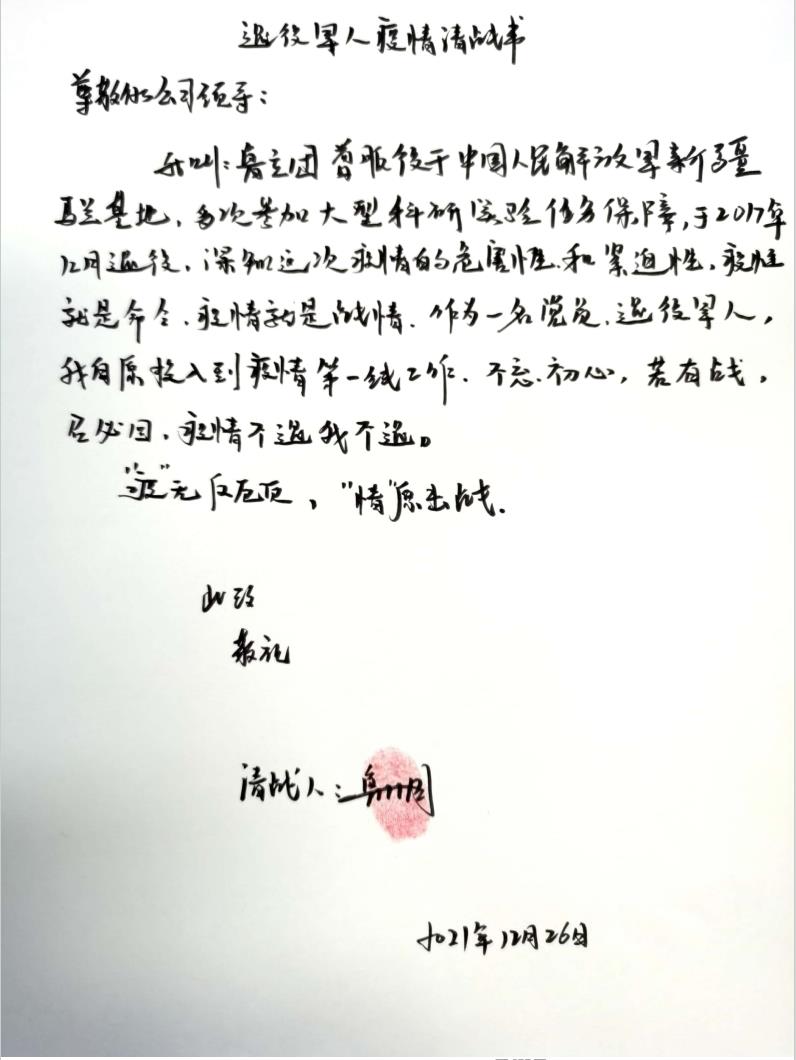 退役军人疫情请战书
尊敬的公司领导：
我叫：袁立团 曾服役于中国人民解放军新疆
马兰基地，多次参加大型科研试验任务保障，于2017年
12月退役，深知这次疫情的危害性和紧迫性，疫情
就是命令，疫情就是战情，作为一名党员，退役军人，
我自原投入到疫情第一线工作，不忘初心，若有战，
召必回，疫情不退我不退。
“疫”无反顾，“情”原出战．
此致
敬礼
请战人：
2021年12月26日